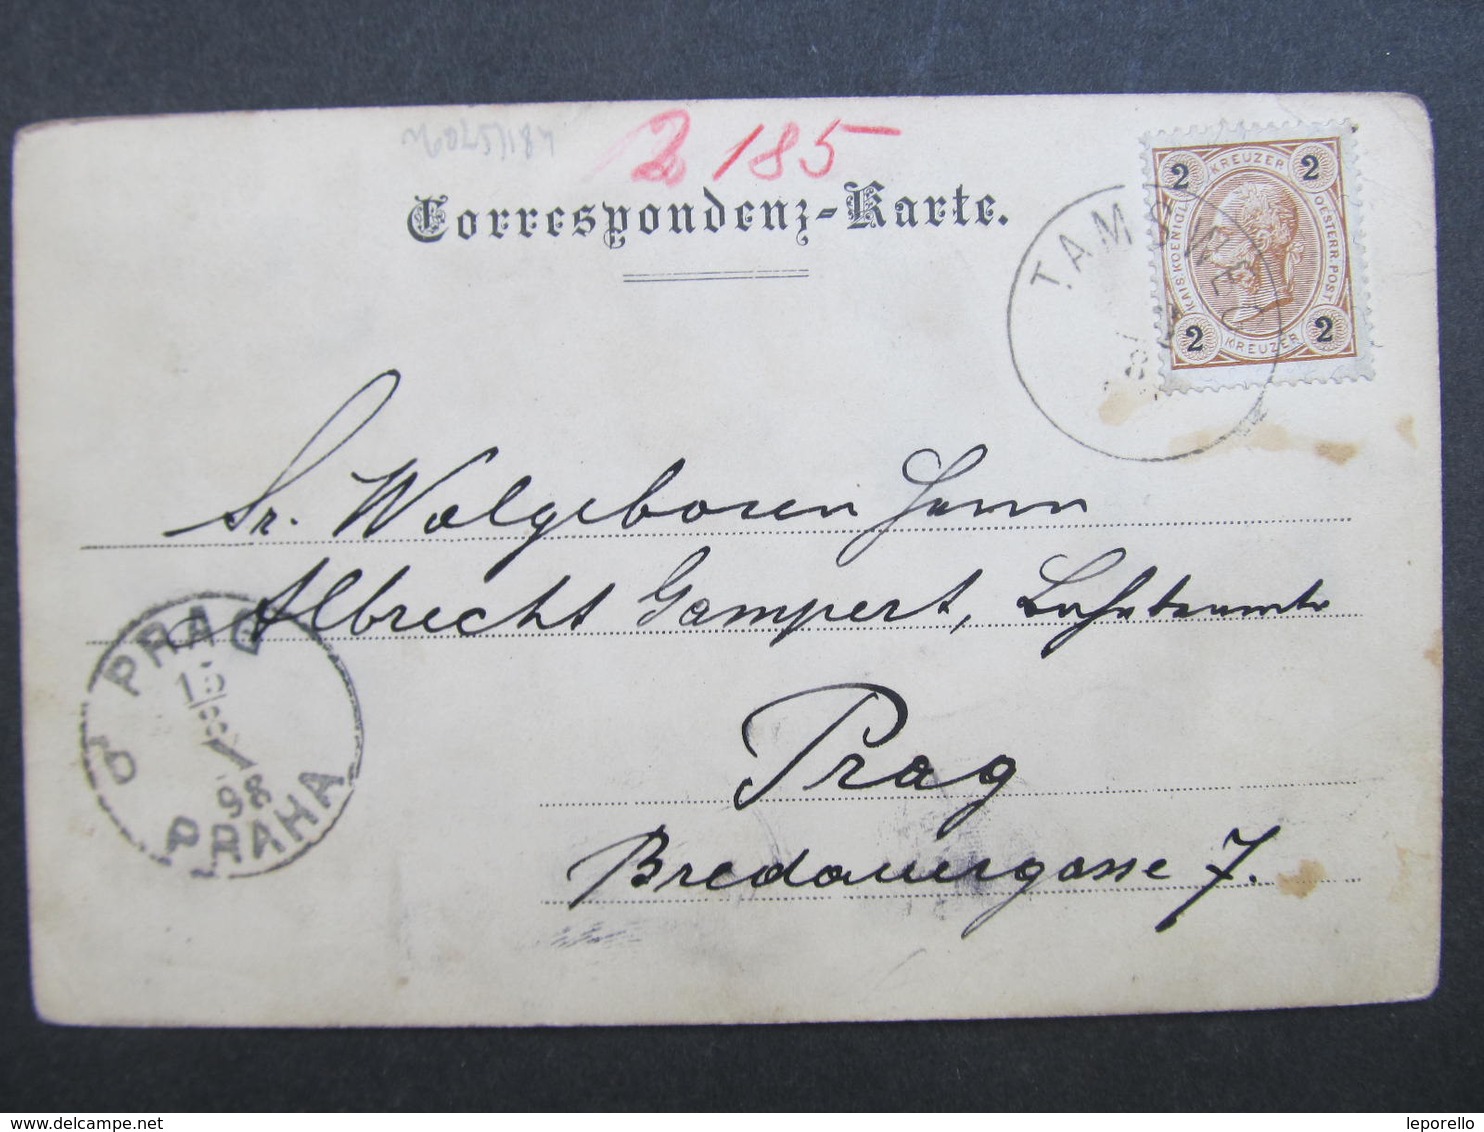 2 185
Correspondenz-Karte.
TAMSWEG
2 KREUZER 2
KAIS. KOENIGL. OESTERR. POST
2 KREUZER 2
Sr. Wolgeboren Herrn
Albrecht Gampert,
Prag
Bredauergasse 7.
PRAG
15
8
98
PRAHA
www.delcampe.net
leporello